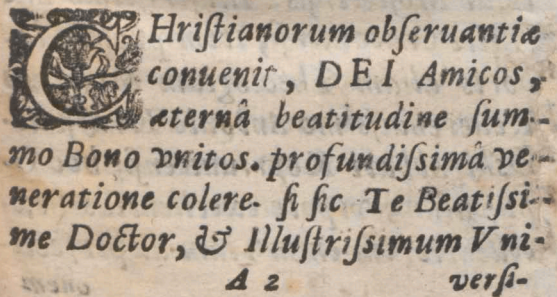 CHriſtianorum obſeruantiæ
conuenit, DEI Amicos,
æternâ beatitudine ſum-
mo Bono vnitos. profundiſsimâ ve-
neratione colere. ſi ſic Te Beatiſsi-
me Doctor, & Illuſtriſsimum Vni-
A 2 verſi-